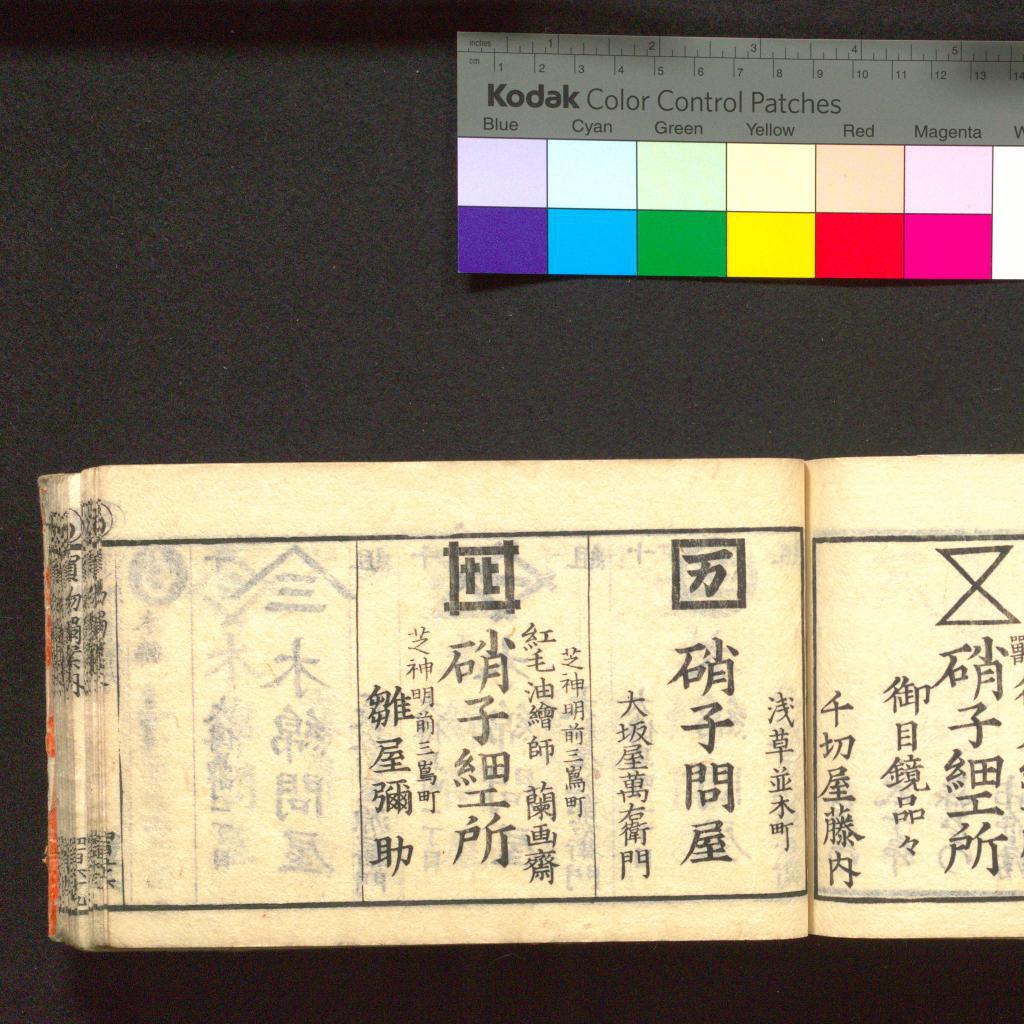 inches 1 2 3 4 5
cm 1 2 3 4 5 6 7 8 9 10 11 12 13 14
Kodak Color Control Patches
Blue Cyan Green Yellow Red Magenta W
硝子細工所
御目鏡品々
千切屋藤内
浅草並木町
万
硝子問屋
大坂屋萬右衛門
芝神明前三嶌町
紅毛油繪師 蘭画齋
硝子細工所
芝神明前三嶌町
雛屋彌助